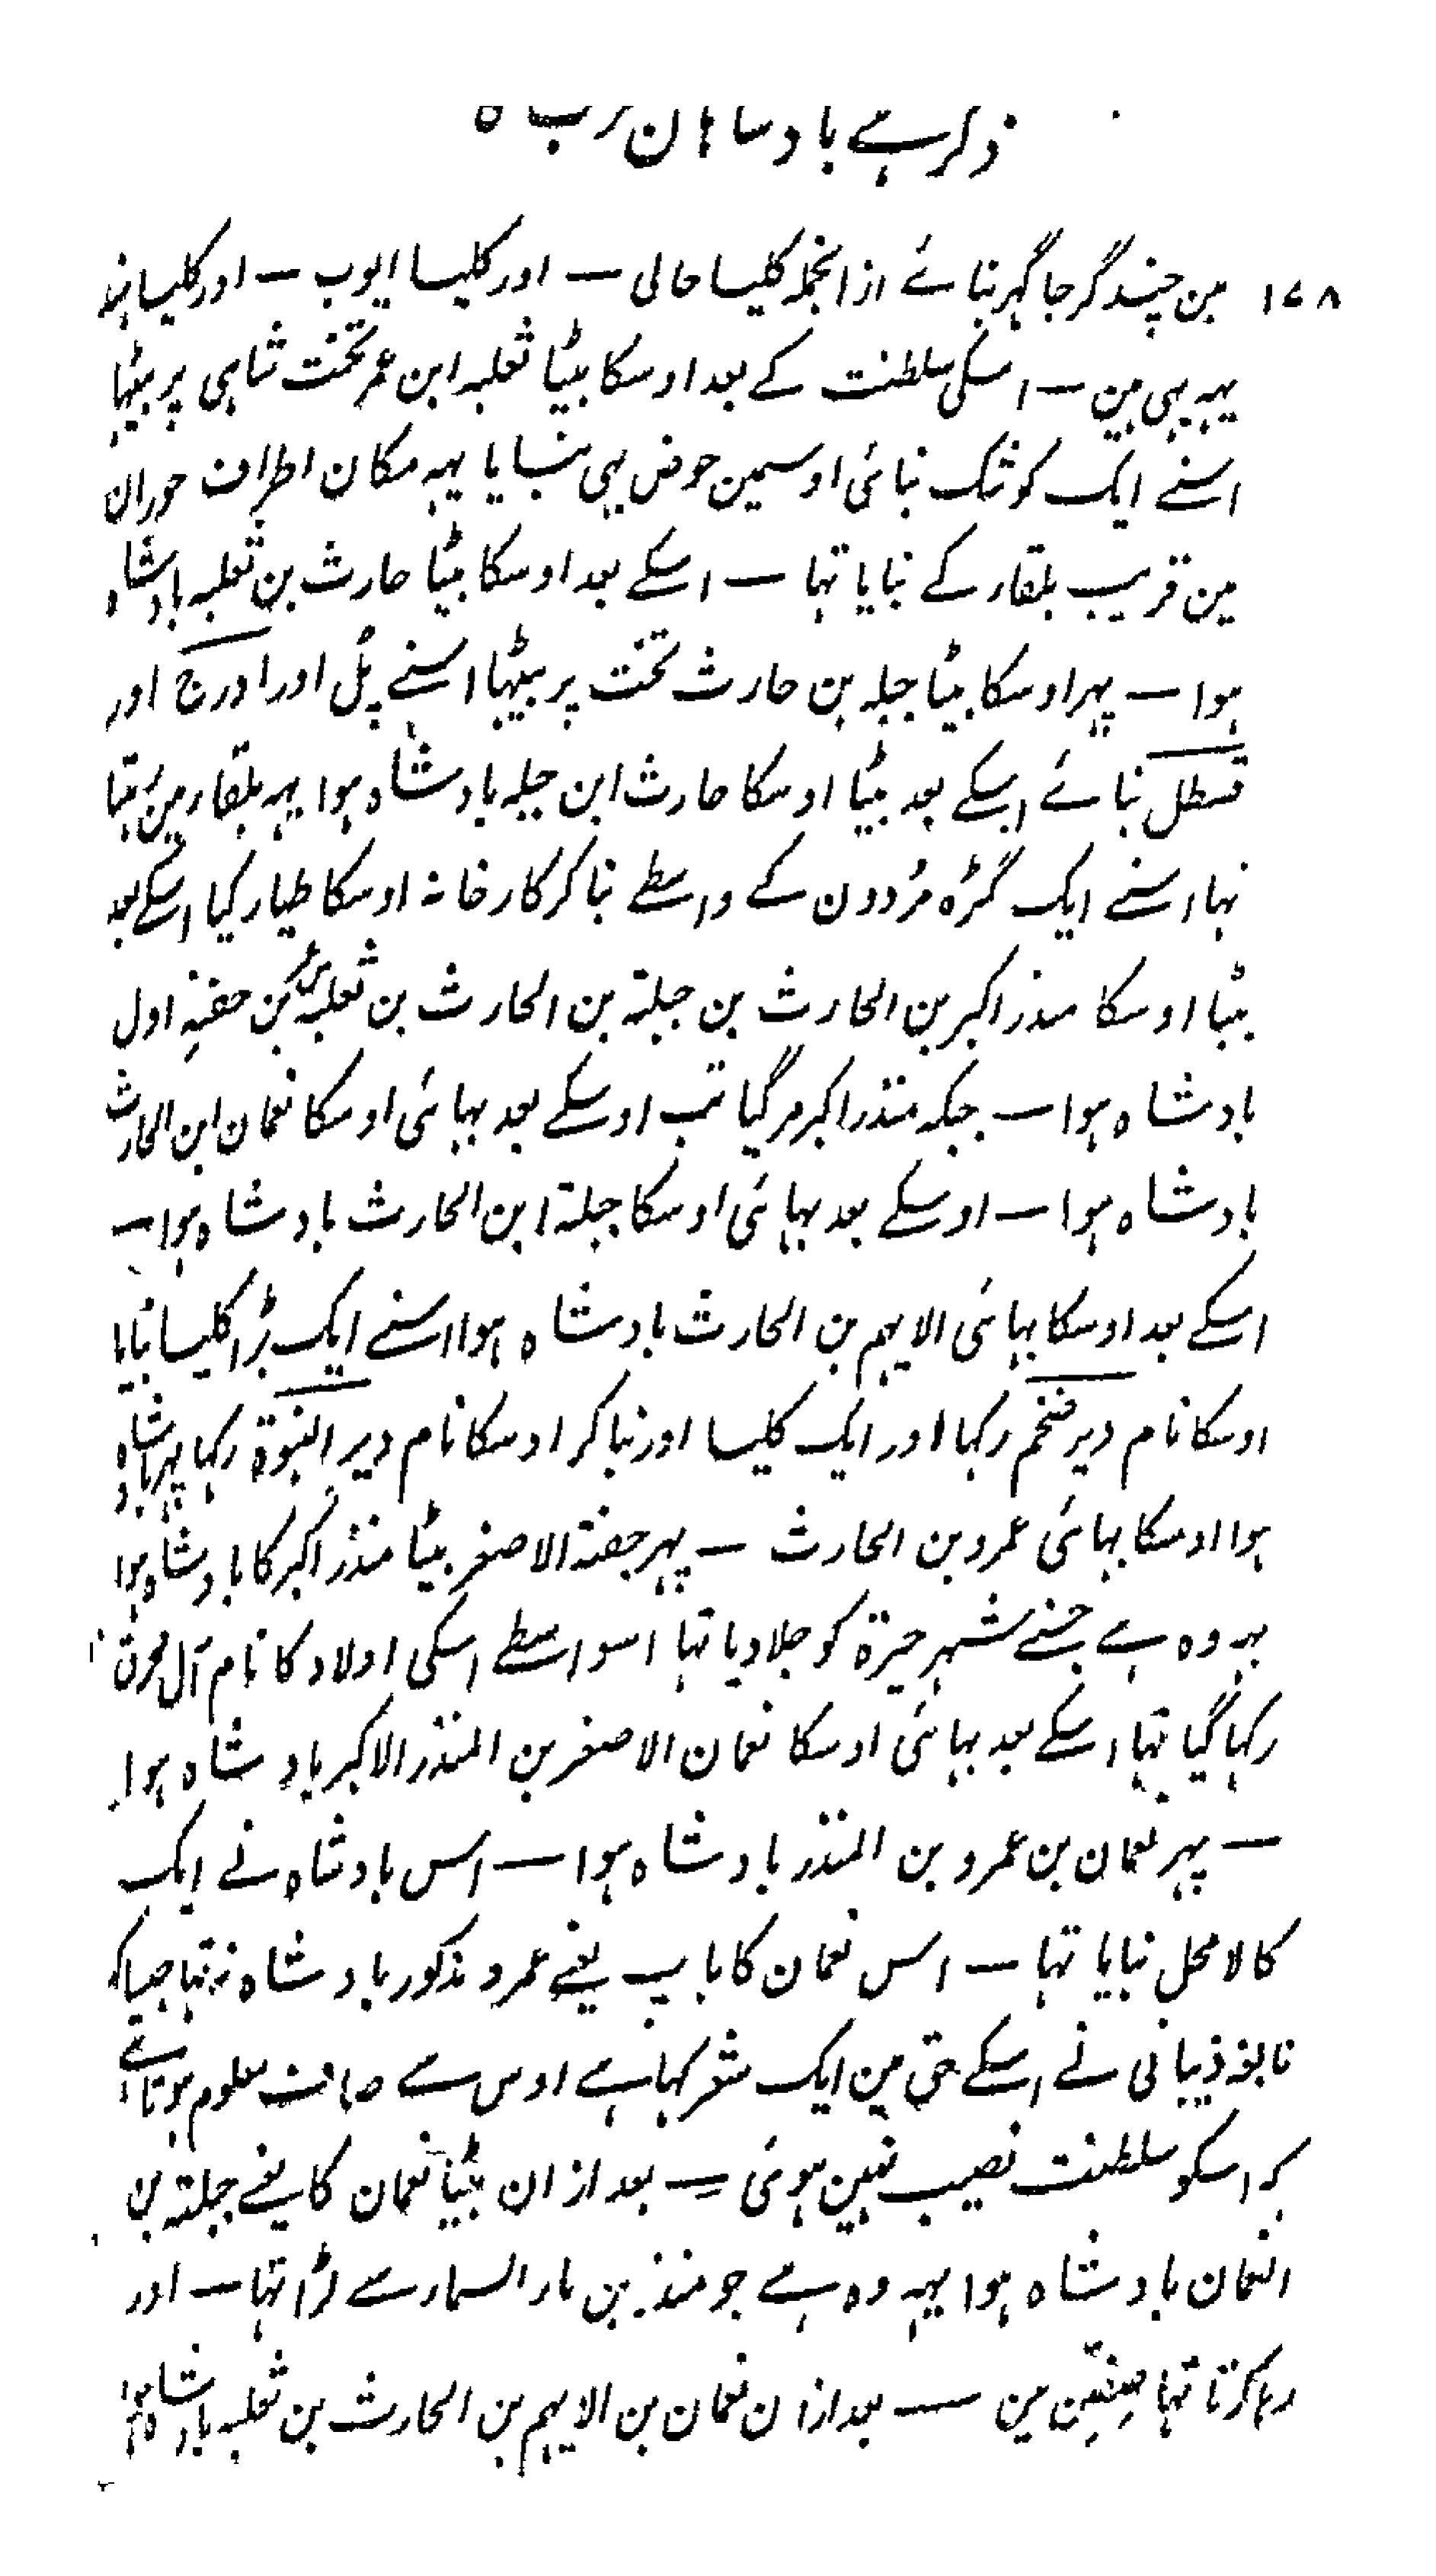 ذکر ہے بادشاہان عرب کا
۱۷۸ مین چند گرجا گہر بنائے ازانجملہ کلیسا حالی — اور کلیسا ایوب — اور کلیسا ہند
یہہ ہی مین — اسکی سلطنت کے بعد اوسکا بیٹا ثعلبہ ابن عمر تخت شاہی پر بیٹہا
اسنے ایک کوشک بنائی اوسمین حوض بہی بنایا یہہ مکان اطراف حوران
مین قریب بلقار کے بنایا تہا — اسکے بعد اوسکا بیٹا حارث بن ثعلبہ بادشاہ
ہوا — پہر اوسکا بیٹا جبلہ بن حارث تخت پر بیٹہا اسنے پل اور ادرج اور
قسطل بنائے اسکے بعد بیٹا اوسکا حارث ابن جبلہ بادشاہ ہوا یہہ بلقار مین رہتا
تہا اسنے ایک گڑہ مردون کے واسطے بنا کر کارخانہ اوسکا طیار کیا اسکے بعد
بیٹا اوسکا منذر اکبر بن الحارث بن جبلۃ بن الحارث بن ثعلبہ بن جفنہ اول
بادشاہ ہوا — جبکہ منذر اکبر مر گیا تب اوسکے بعد بہائی اوسکا نعمان ابن الحارث
بادشاہ ہوا — اوسکے بعد بہائی اوسکا جبلۃ ابن الحارث بادشاہ ہوا —
اسکے بعد اوسکا بہائی الایہم بن الحارث بادشاہ ہوا اسنے ایک بڑا کلیسا بنایا
اوسکا نام دیر ضخم رکہا اور ایک کلیسا اور بنا کر اوسکا نام دیر النبوۃ رکہا پہر بادشاہ
ہوا اوسکا بہائی عمرو بن الحارث — پہر جفنۃ الاصغر بیٹا منذر اکبر کا بادشاہ ہوا
یہہ وہ ہے جسنے شہر حیرۃ کو جلا دیا تہا اسواسطے اسکی اولاد کا نام آل محرق
رکہا گیا تہا اسکے بعد بہائی اوسکا نعمان الاصغر بن المنذر الاکبر بادشاہ ہوا
— پہر نعمان بن عمرو بن المنذر بادشاہ ہوا — اس بادشاہ نے ایک
کالا محل بنایا تہا — اس نعمان کا باپ یعنے عمرو مذکور بادشاہ نہ تہا جیسا کہ
نابغہ ذبیانی نے اسکے حق مین ایک شعر کہا ہے اوس سے صاف معلوم ہوتا ہے
کہ اسکو سلطنت نصیب نہین ہوئی — بعد ازان بیٹا نعمان کا یعنے جبلۃ بن
النعمان بادشاہ ہوا یہہ وہ ہے جو منذر بن مار السمار سے لڑا تہا — اور
رہا کرتا تہا صفین مین — بعد ازان نعمان بن الایہم بن الحارث بن ثعلبہ بادشاہ ہوا